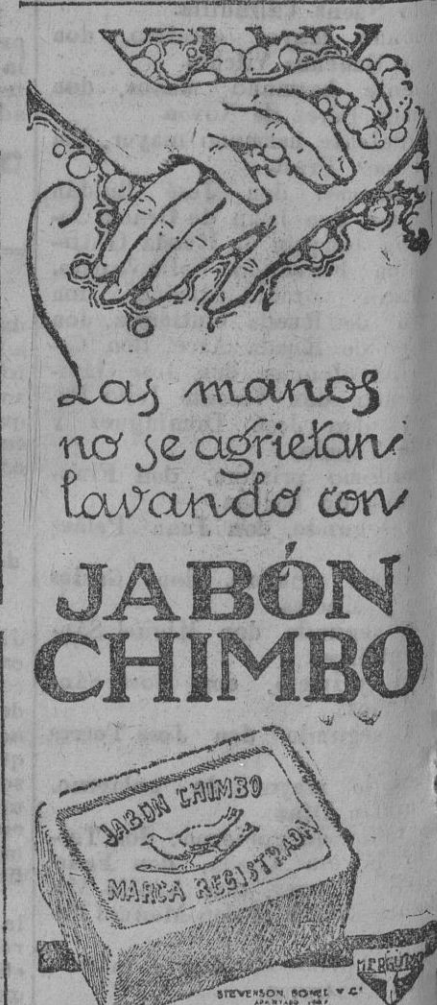 Las manos
no se agrietan
lavando con
JABÓN
CHIMBO
JABON CHIMBO
MARCA REGISTRADA
STEVENSON,